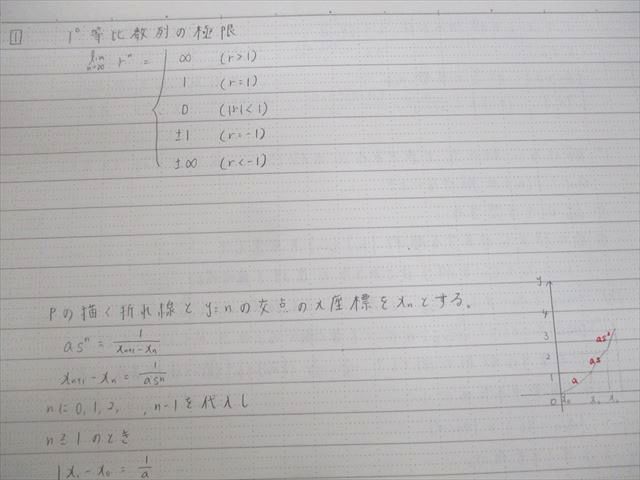 1 1° 等比数列の極限
lim n→∞ r^n = { ∞ (r>1)
1 (r=1)
0 (|r|<1)
±1 (r=-1)
±∞ (r<-1)
Pの描く折れ線とy=nの交点のx座標をxnとする。
as^n = 1/(x_{n+1}-x_n)
x_{n+1}-x_n = 1/(as^n)
nに0,1,2, ,n-1を代入し
n≧1のとき
x_1-x_0 = 1/a
y
4
3
2
1
0
as²
as
a
x_0
x_1